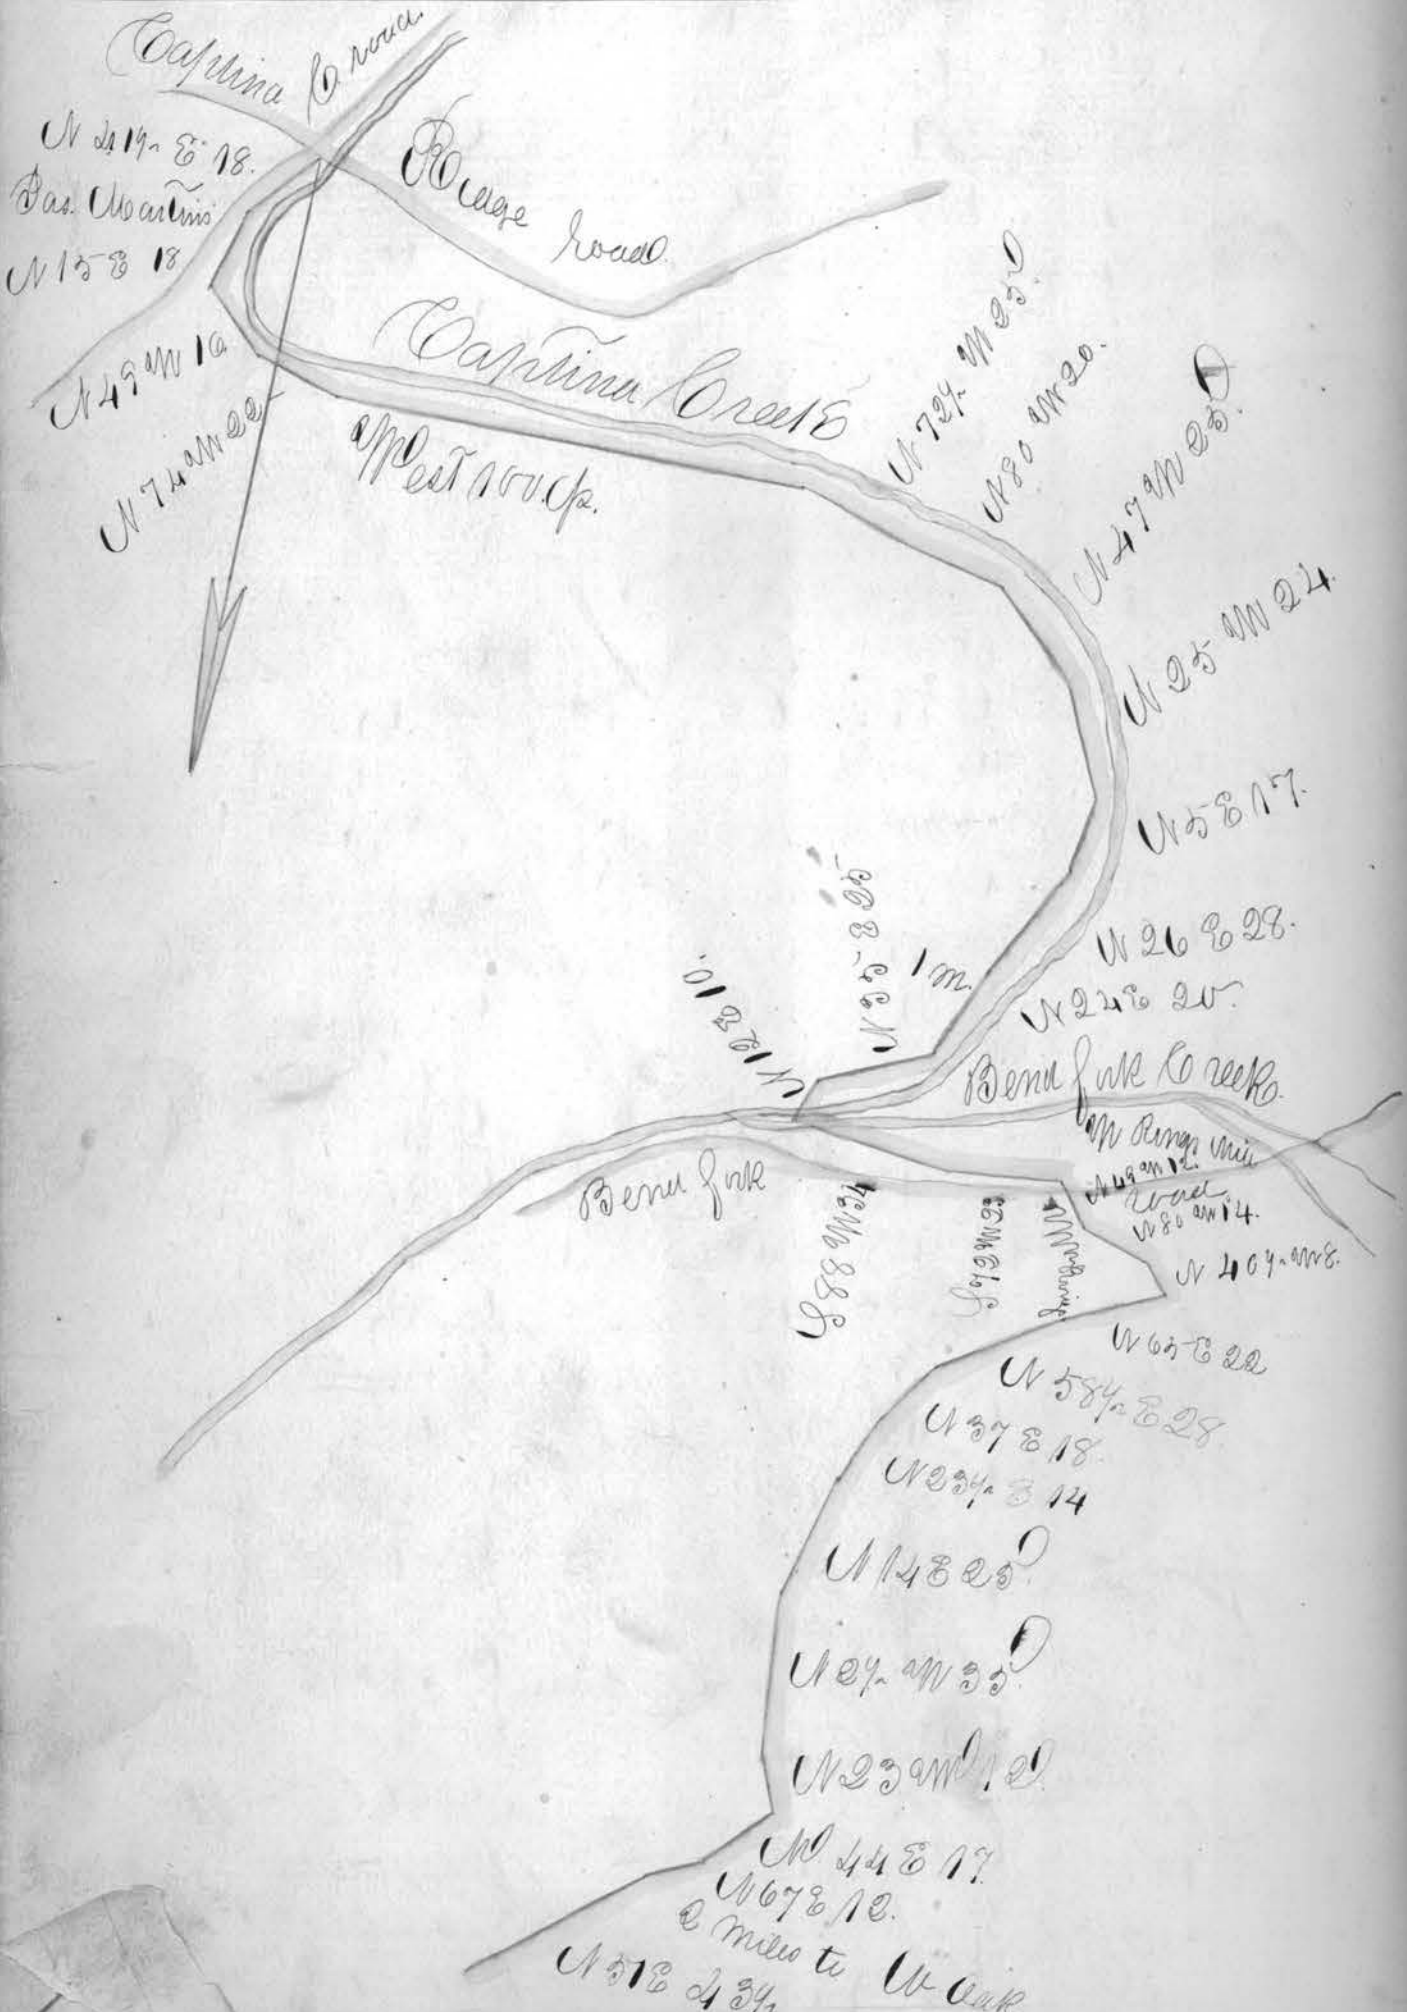 Captina C. road.
N 41½ E 18.
Jas. Martins
N 15 E 18
Ridge Road.
N 49 W 10
N 74 W 22
Captina Creek
West 100.
N 72½ W 25.
N 80 W 20.
N 47 W 25.
N 25 W 24.
N 5 E 17.
N 26 E 28.
N 24 E 20.
1 m.
N 55 E 25
N 12 E 10.
Bend fork Creek
W Rings Mill
road
N 49 W 12.
N 80 W 14.
N 40½ W 8.
Bend fork
S 88 W 34
N 65 E 22
N 58½ E 28.
N 37 E 18.
N 23½ E 14
N 14 E 25.
N 2½ W 35.
N 23 W 12.
N 44 E 17.
N 67 E 12.
2 miles to W Oak
N 51 E